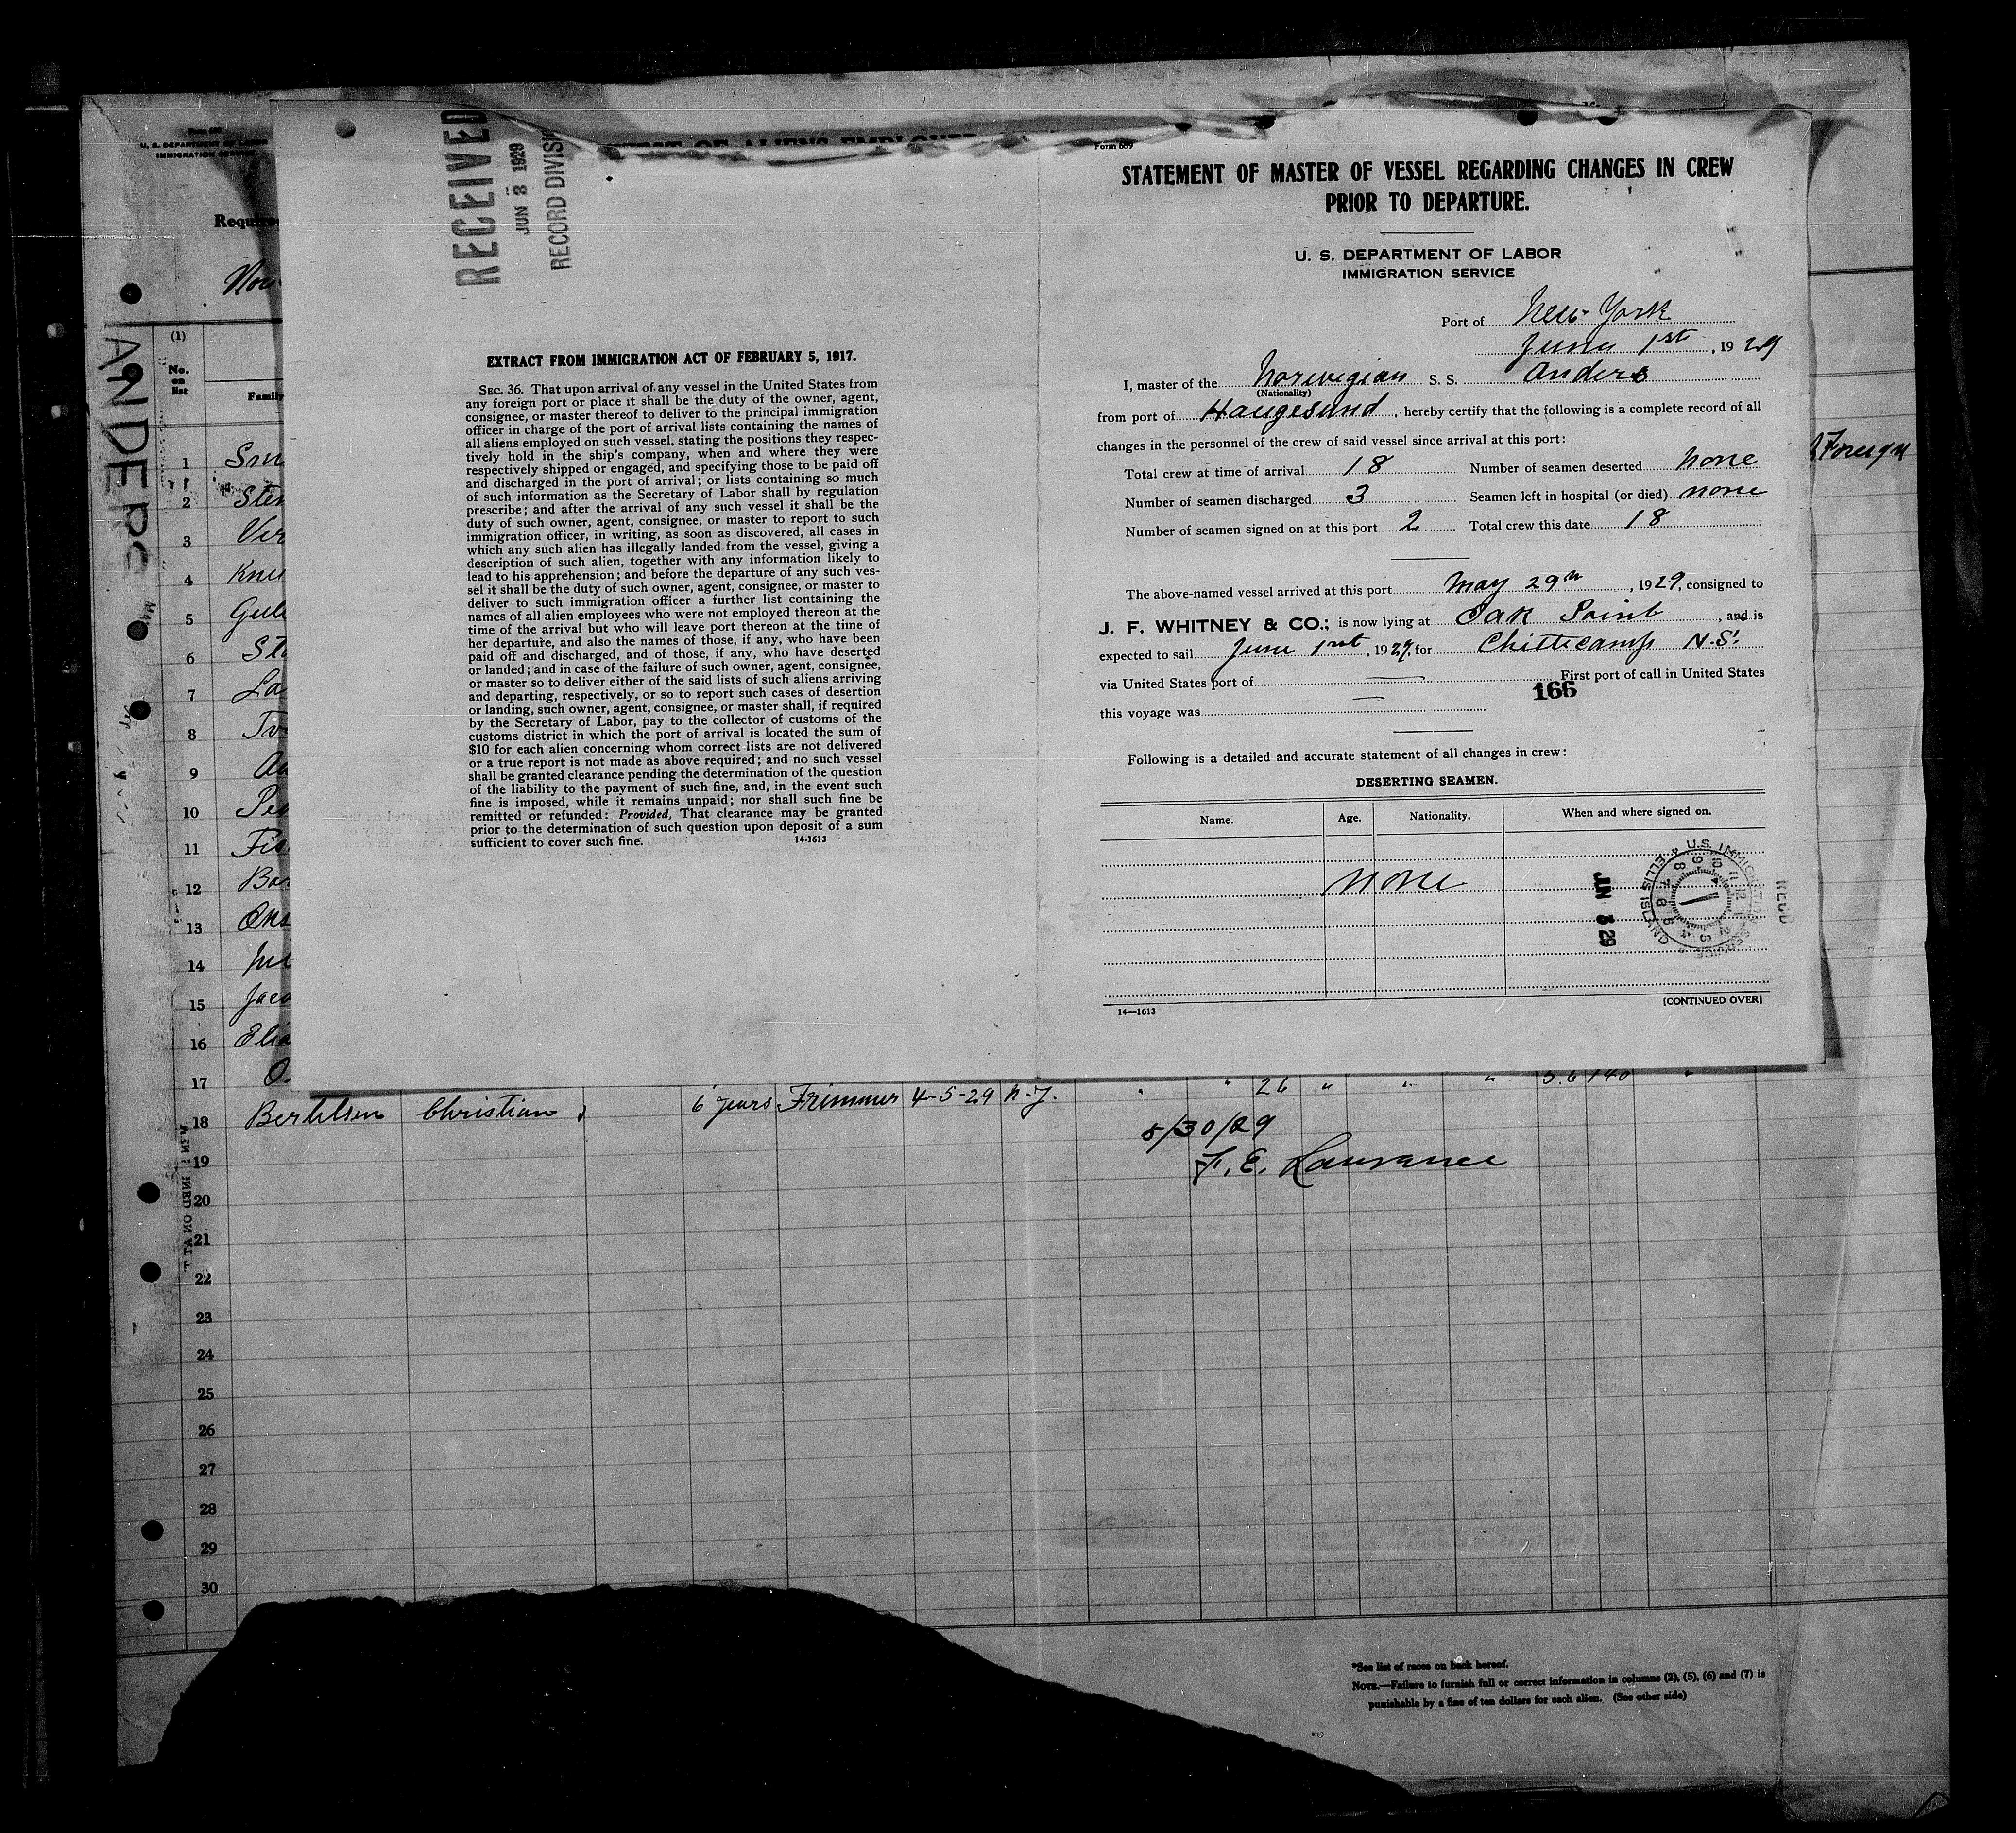 Form 680
U. S. DEPARTMENT OF LABOR
IMMIGRATION SERVICE
ANDERS
(1)
No.
on
list
Family
1
2
3
4
5
6
7
8
9
10
11
12
13
14
15
16
17 26 " " " 5.6 140 "
18 Berthlsen Christian 6 years Trimmer 4-5-29 N.Y.
5/30/29
19 F. E. Lawrance
20
21
22
23
24
25
26
27
28
29
30
*See list of races on back hereof.
NOTE.—Failure to furnish full or correct information in columns (2), (5), (6) and (7) is
punishable by a fine of ten dollars for each alien. (See other side)
Foreign
RECEIVED
JUN 3 1929
RECORD DIVISIO
EXTRACT FROM IMMIGRATION ACT OF FEBRUARY 5, 1917.
SEC. 36. That upon arrival of any vessel in the United States from
any foreign port or place it shall be the duty of the owner, agent,
consignee, or master thereof to deliver to the principal immigration
officer in charge of the port of arrival lists containing the names of
all aliens employed on such vessel, stating the positions they respec-
tively hold in the ship's company, when and where they were
respectively shipped or engaged, and specifying those to be paid off
and discharged in the port of arrival; or lists containing so much
of such information as the Secretary of Labor shall by regulation
prescribe; and after the arrival of any such vessel it shall be the
duty of such owner, agent, consignee, or master to report to such
immigration officer, in writing, as soon as discovered, all cases in
which any such alien has illegally landed from the vessel, giving a
description of such alien, together with any information likely to
lead to his apprehension; and before the departure of any such ves-
sel it shall be the duty of such owner, agent, consignee, or master to
deliver to such immigration officer a further list containing the
names of all alien employees who were not employed thereon at the
time of the arrival but who will leave port thereon at the time of
her departure, and also the names of those, if any, who have been
paid off and discharged, and of those, if any, who have deserted
or landed; and in case of the failure of such owner, agent, consignee,
or master so to deliver either of the said lists of such aliens arriving
and departing, respectively, or so to report such cases of desertion
or landing, such owner, agent, consignee, or master shall, if required
by the Secretary of Labor, pay to the collector of customs of the
customs district in which the port of arrival is located the sum of
$10 for each alien concerning whom correct lists are not delivered
or a true report is not made as above required; and no such vessel
shall be granted clearance pending the determination of the question
of the liability to the payment of such fine, and, in the event such
fine is imposed, while it remains unpaid; nor shall such fine be
remitted or refunded: Provided, That clearance may be granted
prior to the determination of such question upon deposit of a sum
sufficient to cover such fine. 14-1613
Form 689
STATEMENT OF MASTER OF VESSEL REGARDING CHANGES IN CREW
PRIOR TO DEPARTURE.
U. S. DEPARTMENT OF LABOR
IMMIGRATION SERVICE
Port of New York
June 1st, 1929
I, master of the Norwegian S. S. Anders
(Nationality)
from port of Haugesund, hereby certify that the following is a complete record of all
changes in the personnel of the crew of said vessel since arrival at this port:
Total crew at time of arrival 18 Number of seamen deserted None
Number of seamen discharged 3 Seamen left in hospital (or died) none
Number of seamen signed on at this port 2 Total crew this date 18
The above-named vessel arrived at this port May 29th, 1929, consigned to
J. F. WHITNEY & CO.; is now lying at Oak Point, and is
expected to sail June 1st, 1929, for Chitticamp N.S.
via United States port of — First port of call in United States
166
this voyage was —
Following is a detailed and accurate statement of all changes in crew:
DESERTING SEAMEN.
Name. Age. Nationality. When and where signed on.
None
U.S. IMMIGRATION SERVICE
JUN 3 29
RECD
[CONTINUED OVER]
14—1613